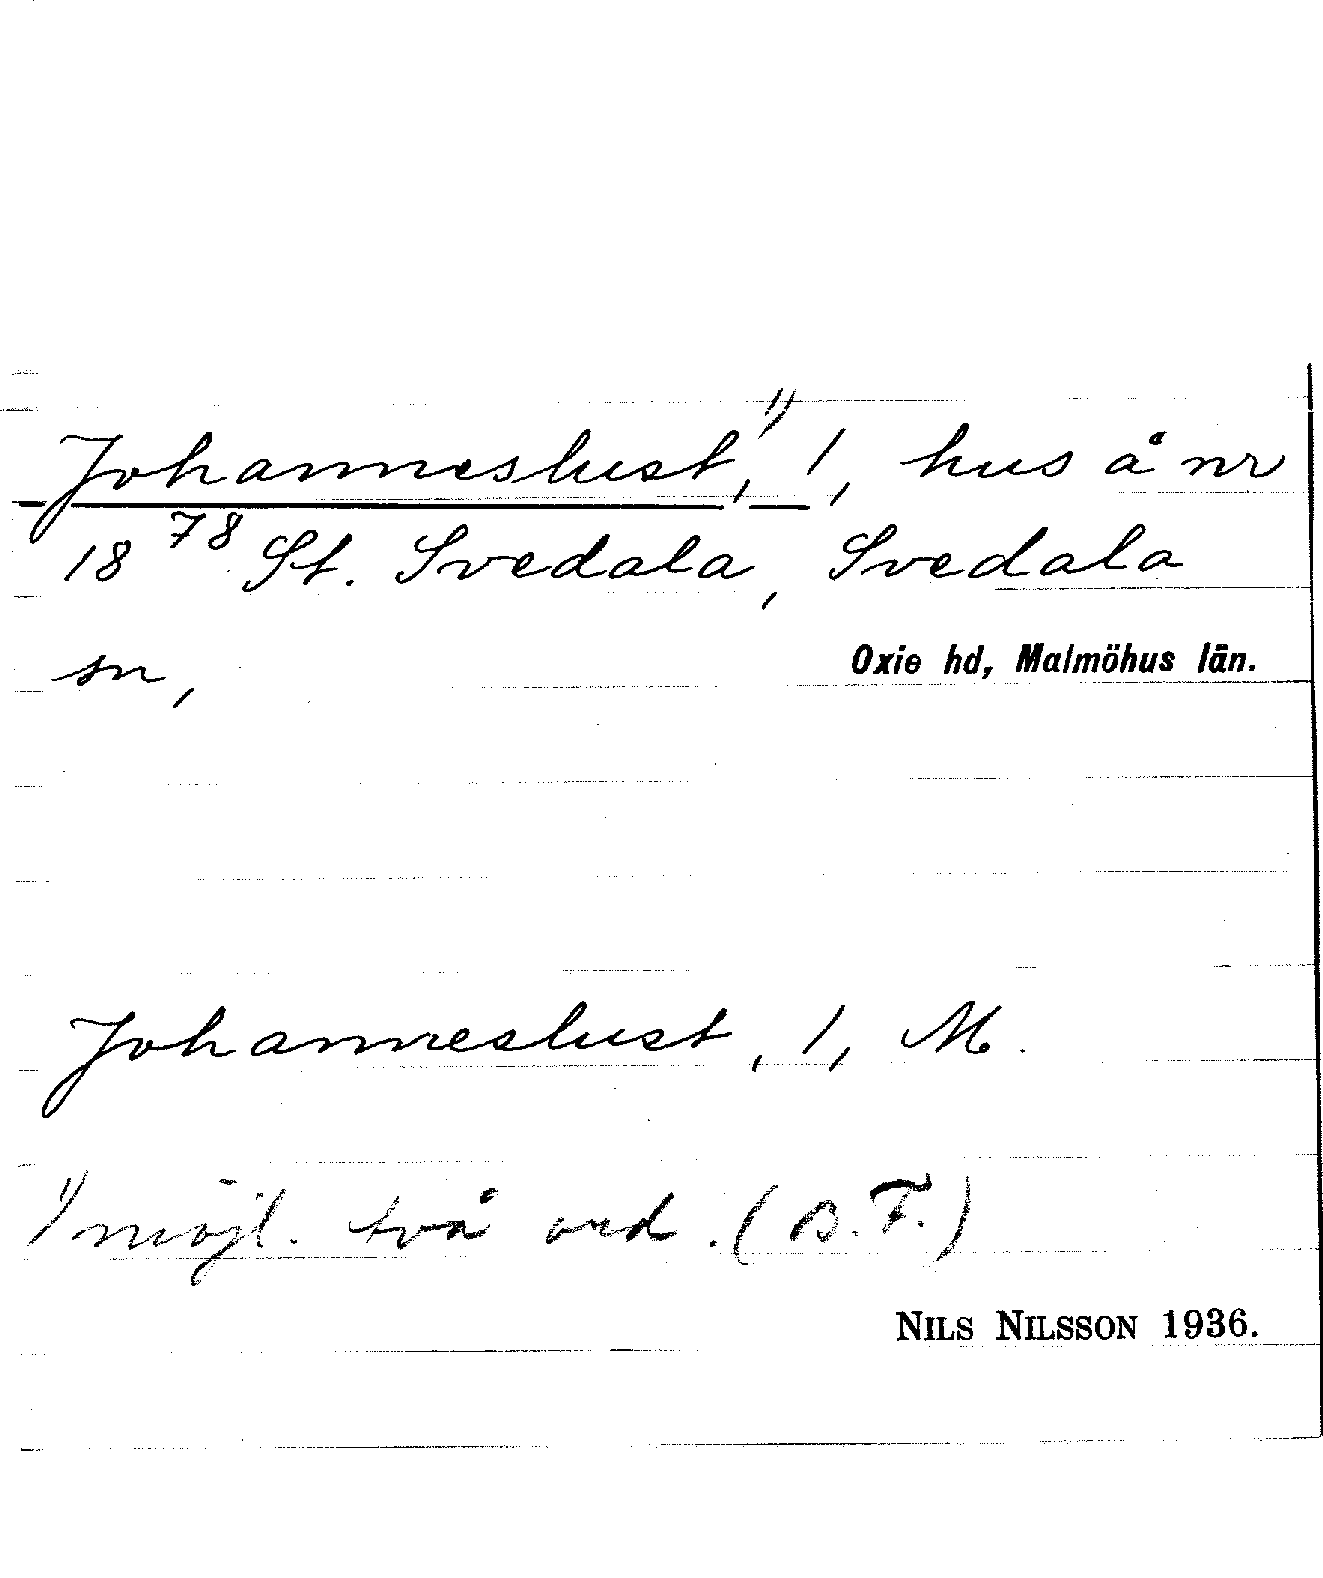 Johanneslust,¹⁾ 1, hus å nr
18⁷⁸ St. Svedala, Svedala
sn, Oxie hd, Malmöhus län.
Johanneslust, 1, M.
¹⁾ möjl. två ord. (B.F.)
NILS NILSSON 1936.